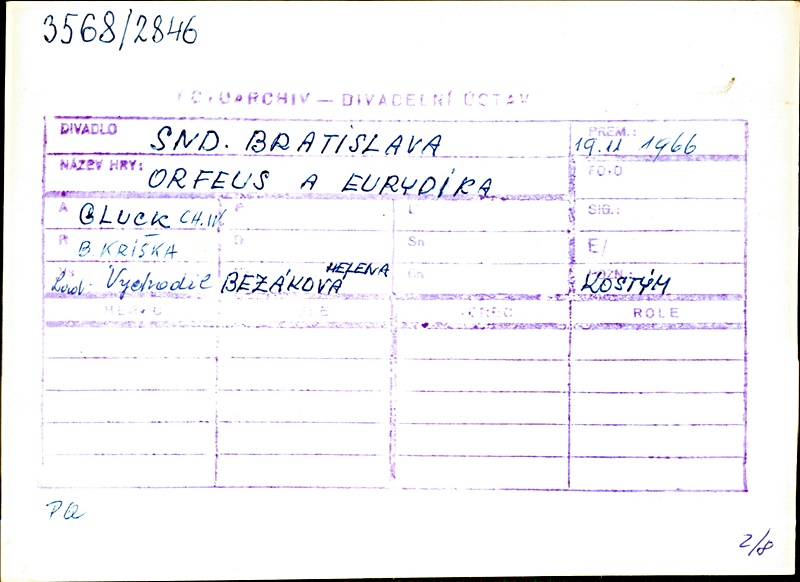 3568/2846
FOTOARCHIV — DIVADELNÍ ÚSTAV
DIVADLO SND. BRATISLAVA PREM.: 19.11 1966
NÁZEV HRY: ORFEUS A EURYDÍKA FOTO
A GLUCK CH.W. P L SIG.:
R B KRIŠKA D Sn E/
Lad. Vychodil BEZÁKOVÁ HELENA Cn POZN.: KOSTÝM
HEREC ROLE HEREC ROLE
PQ
2/8